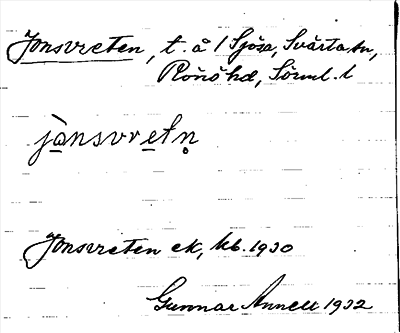 Jonsvreten, t. å / Sjösa, Svärta sn,
Rönö hd, Sörml. l
jànsvretn̥
Jonsvreten ek, kb. 1930
Gunnar Annell 1932